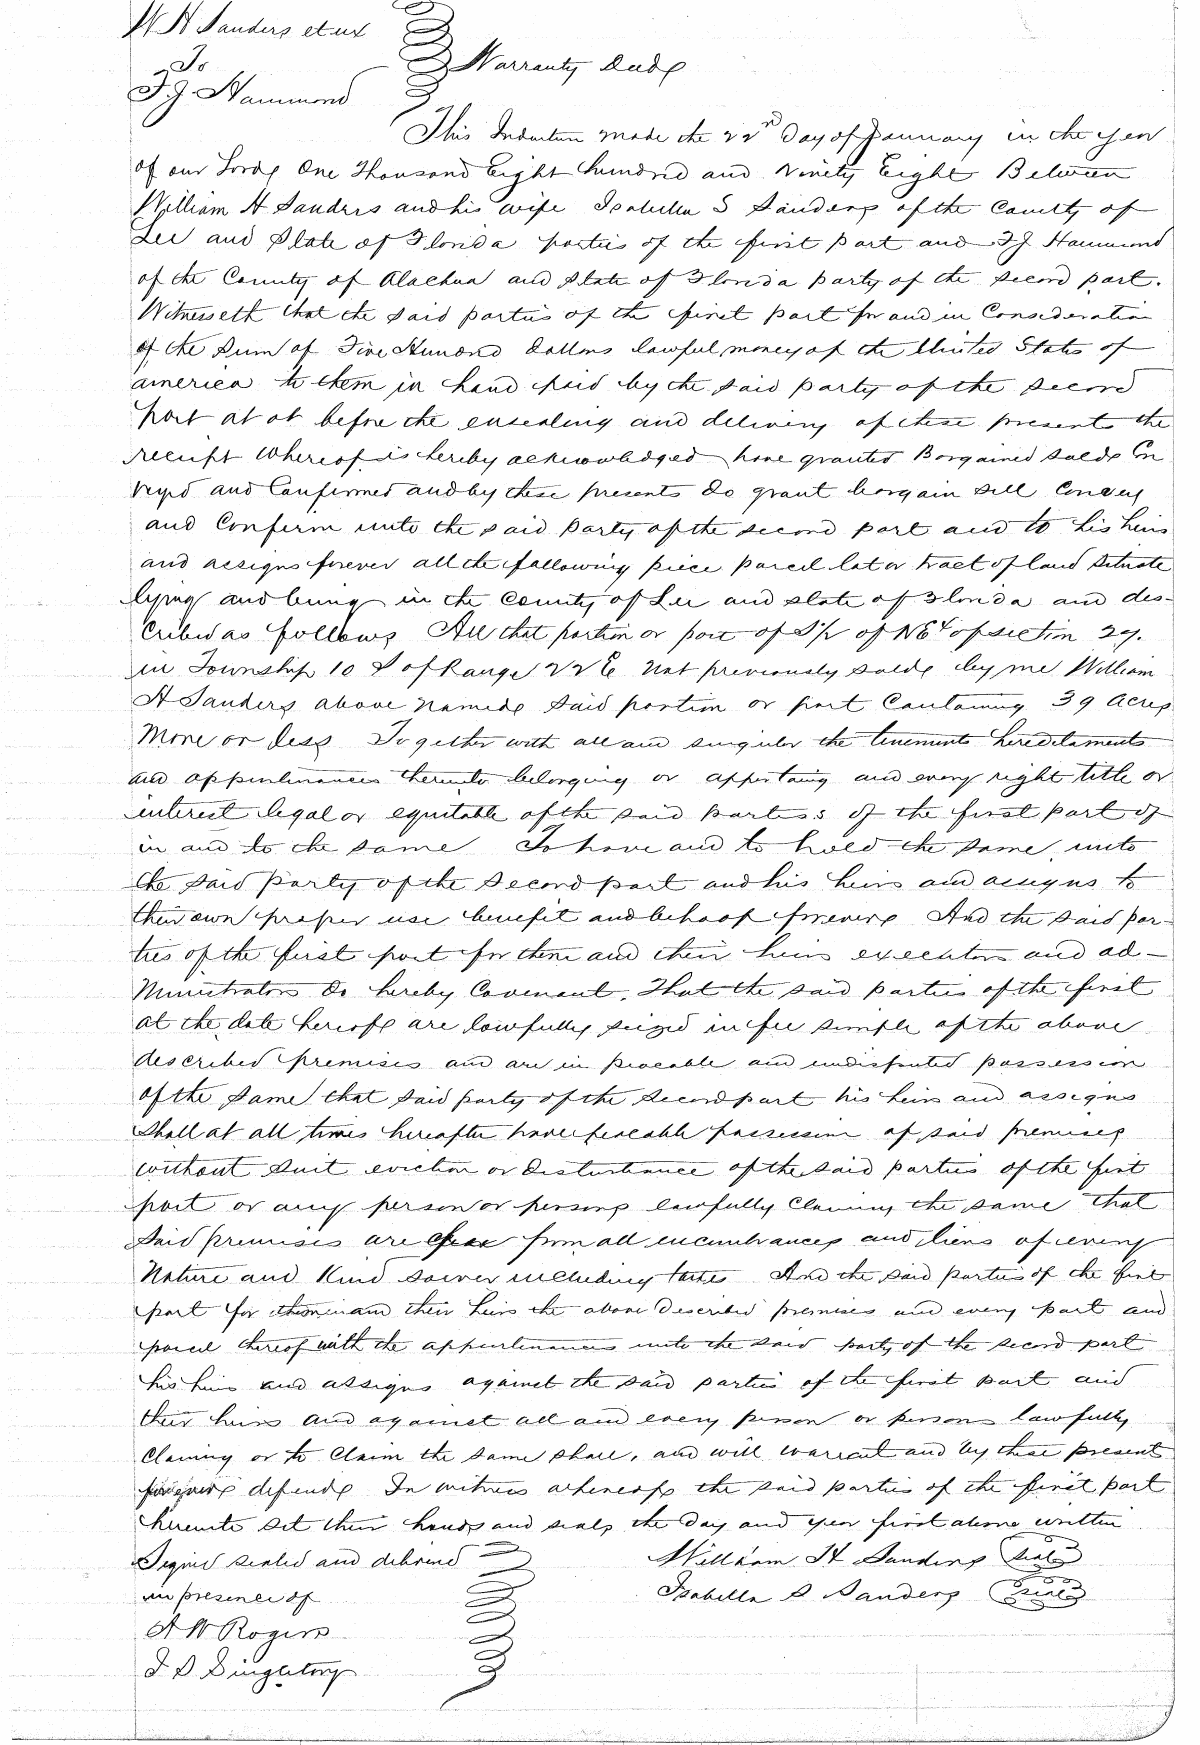 W H Sanders et ux
To
Warranty Deed
F. J. Hammond
This Indenture made the 22nd Day of January in the year
of our Lord One Thousand Eight hundred and Ninety Eight Between
William H Sanders and his wife Isabella S Sanders of the County of
Lee and State of Florida parties of the first part and F J Hammond
of the County of Alachua and State of Florida party of the second part.
Witnesseth that the said parties of the first part for and in Consideration
of the Sum of Five Hundred dollars lawful money of the United States of
america to them in hand paid by the said party of the second
part at ot before the ensealing and delivery of these presents the
receipt whereof is hereby acknowledged have granted Bargained Sold Con
veyed and Confirmed and by these presents do grant bargain sell Convey
and Confirm unto the said party of the second part and to his heirs
and assigns forever all the following piece parcel lot or tract of land situate
lying and being in the County of Lee and State of Florida and des-
cribed as follows All that portion or part of S½ of NE¼ of section 29.
in Township 10 S of Range 22 E not previously sold by me William
H Sanders above named said portion or part Containing 39 acres
More or less Together with all and singular the tenements hereditaments
and appurtinances thereunto belonging or appertaing and every right title or
interest legal or equitable of the said parties of the first part of
in and to the same To have and to hold the same unto
the said party of the second part and his heirs and assigns to
their own proper use benefit and behoof forever And the said par-
ties of the first part for them and their heirs executors and ad-
Ministrators do hereby Covenant, That the said parties of the first
at the date hereof are lawfully seized in fee simple of the above
described premises and are in peaceable and undisputed possession
of the same that said party of the second part his heirs and assigns
Shall at all times hereafter have peaceable possession of said premises
without suit eviction or disturbance of the said parties of the first
part or any person or persons lawfully Claiming the same that
said premises are clear from all encumbrances and liens of every
Nature and Kind soever including taxes And the said parties of the first
part for them and their heirs the above described premises and every part and
parcel thereof with the appurtinances unto the said party of the second part
his heirs and assigns against the said parties of the first part and
their heirs and against all and every person or persons lawfully
Claiming or to Claim the same shall, and will warrant and by these present
forever defend In witness whereof the said parties of the first part
hereunto set their hands and seals the day and year first above written
Signed sealed and delivered
William H Sanders (seal)
in presence of
Isabella S Sanders (seal)
A W Rogers
J S Singletory